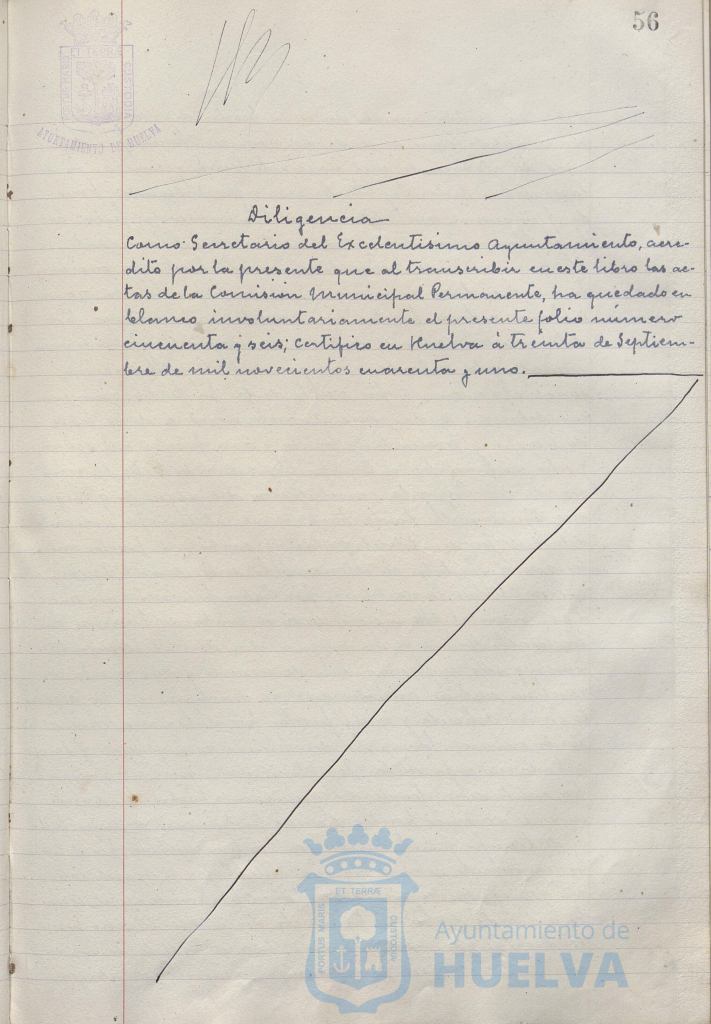 56
PORTUS MARIS
ET TERRÆ
CUSTODIA
AYUNTAMIENTO DE HUELVA
Diligencia
Como Secretario del Excelentísimo Ayuntamiento, acre-
dito por la presente que al transcribir en este libro las ac-
tas de la Comisión Municipal Permanente, ha quedado en
blanco involuntariamente el presente folio número
cincuenta y seis; certifico en Huelva á treinta de Septiem-
bre de mil novecientos cuarenta y uno.
PORTUS MARIS
ET TERRÆ
CUSTODIA
Ayuntamiento de
HUELVA